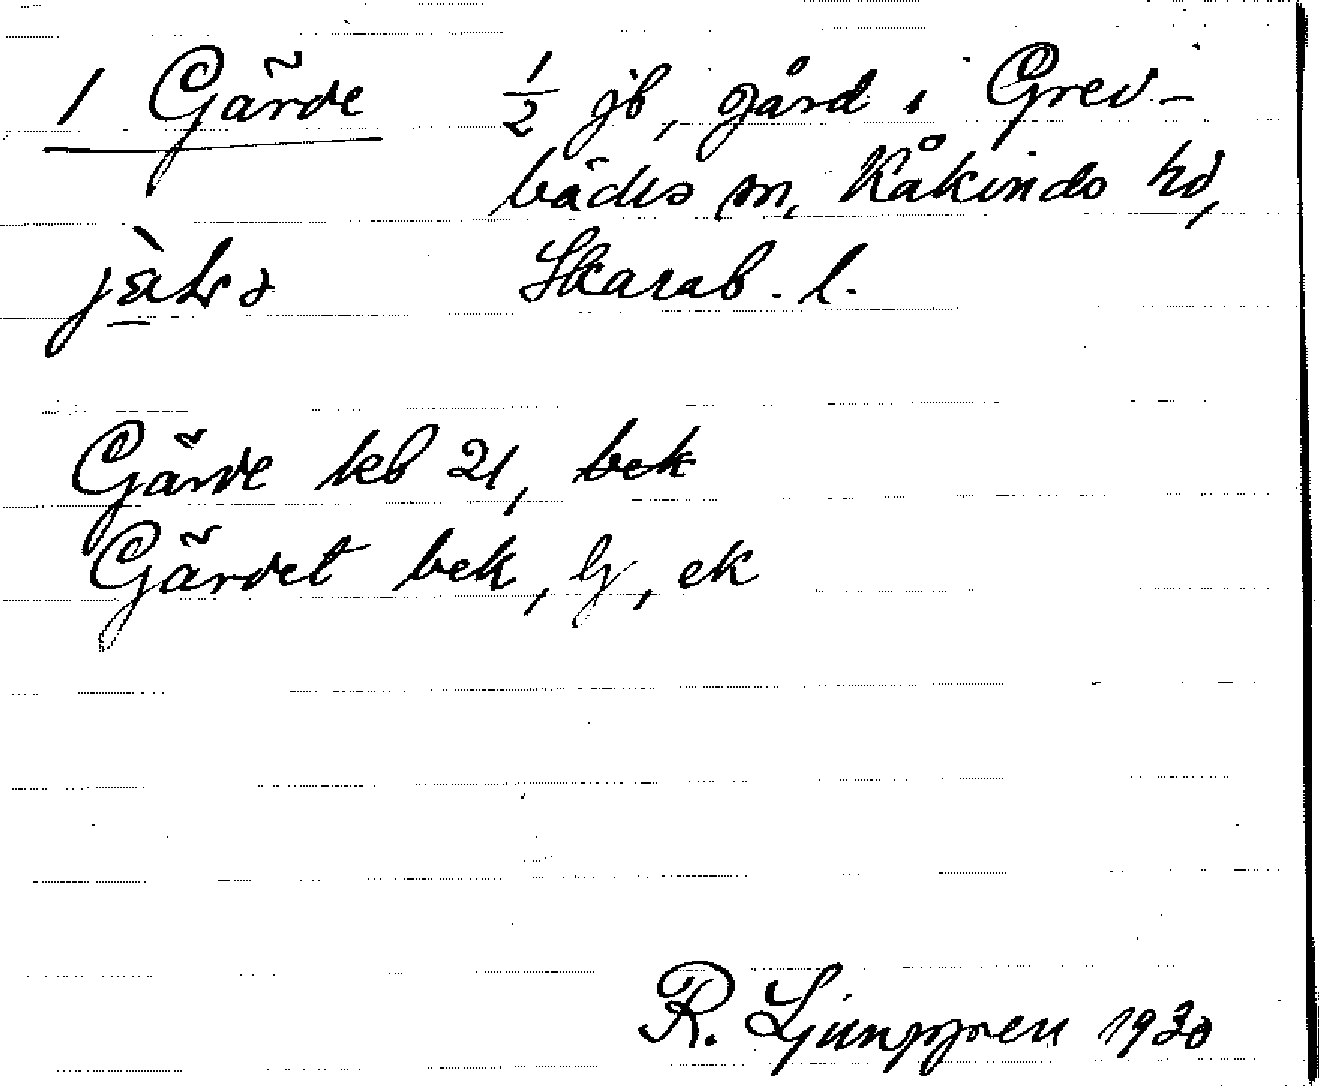 1 Gärde ½ jb, gård i Grev-
bäcks sn, Kåkinds hd,
Skarab. l.
Gärde keb 21, bek
Gärdet bek, G, ek
R. Ljunggren 1930